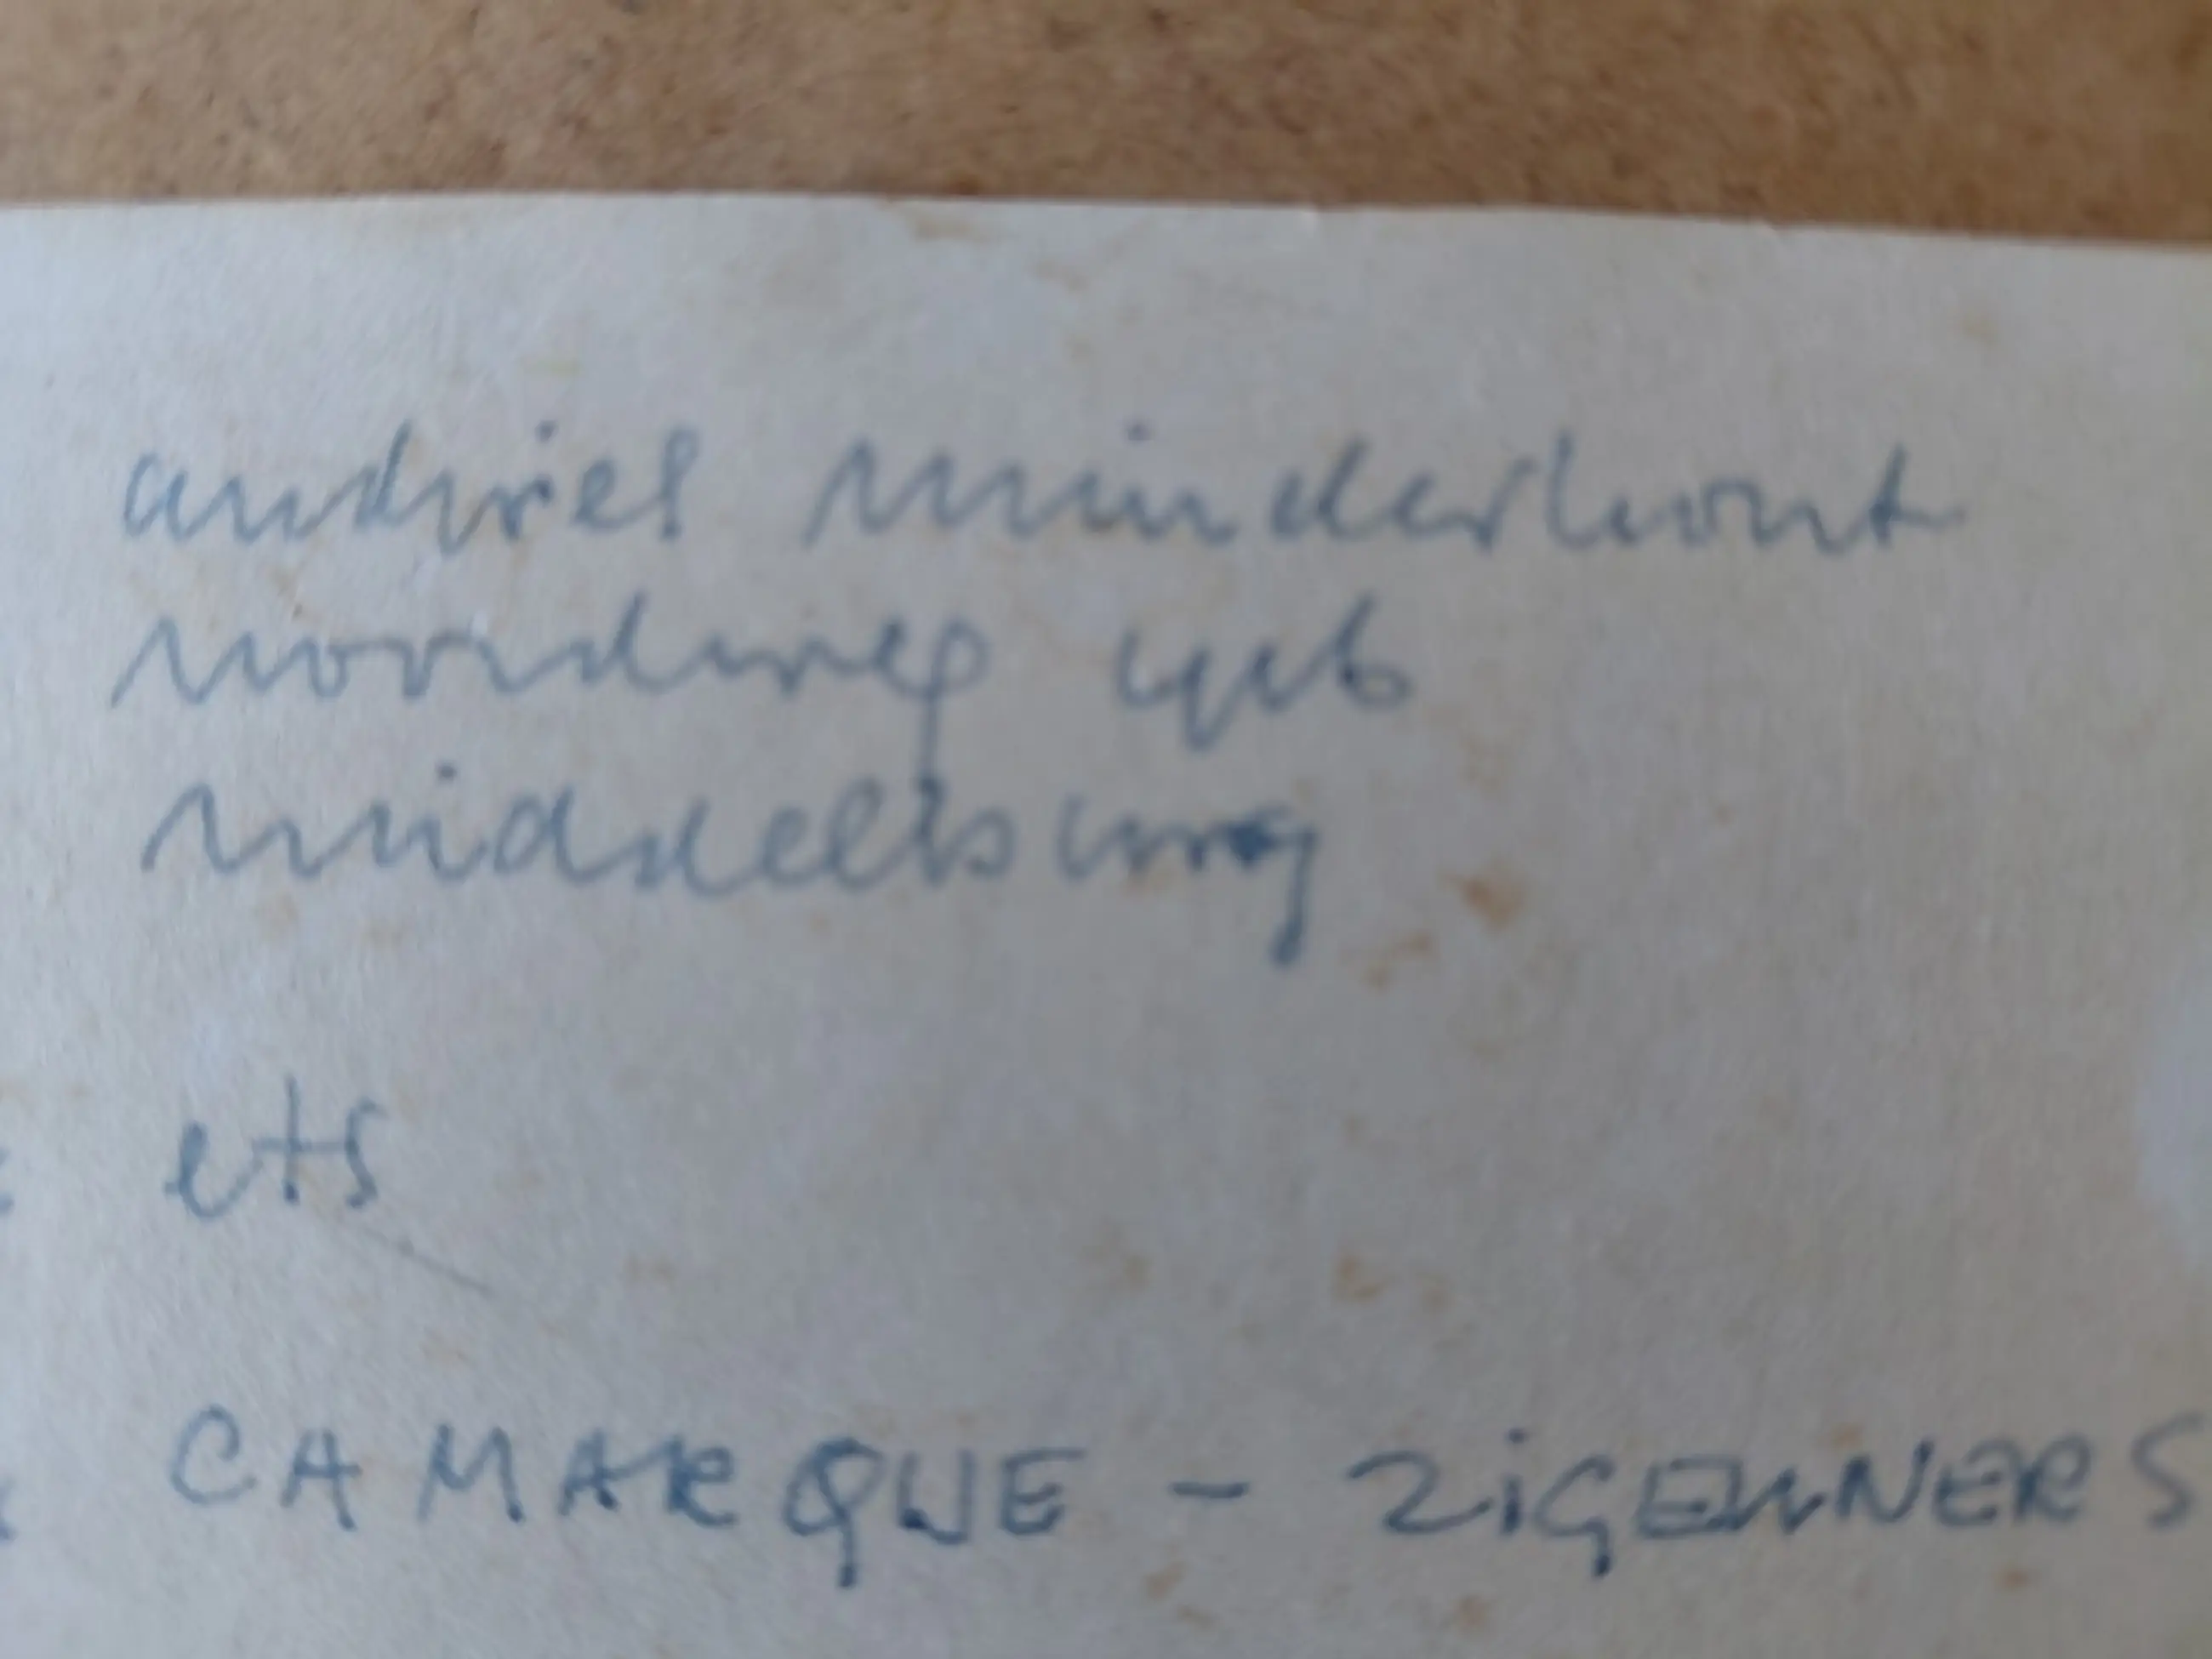 andries minderhout
noordweg 496
middelburg
ets
CAMARQUE - ZiGEUNERS